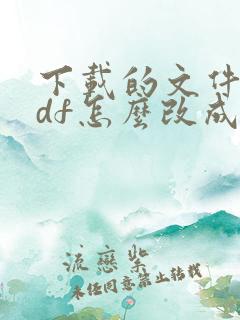 下載的文件
df怎麼改成
流戀紫
未经同意禁止转载